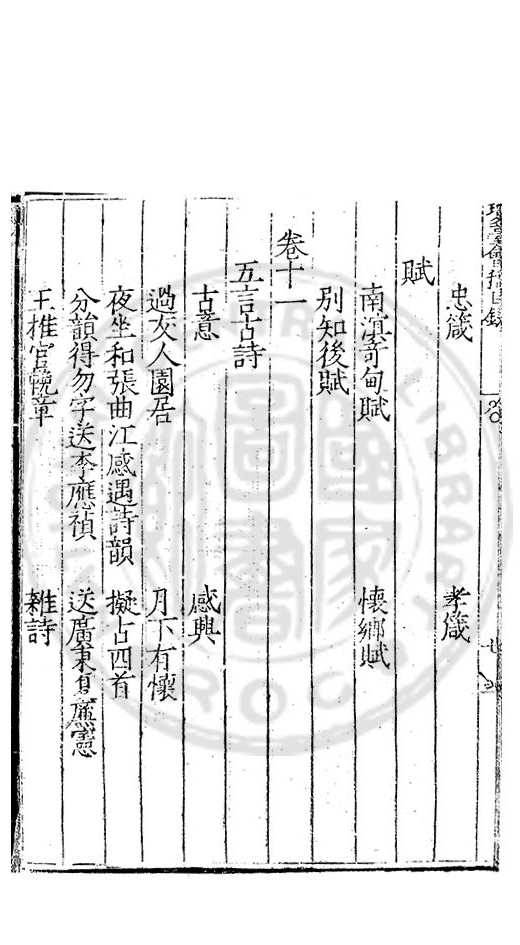 忠箴　孝箴
賦
南滇奇甸賦　懷鄉賦
別知後賦
卷十一
五言古詩
古意　感興
過友人園居　月下有懷
夜坐和張曲江感遇詩韻　擬古四首
分韻得勿字送李應禎　送廣東夏廉憲
王推官輓章　雜詩